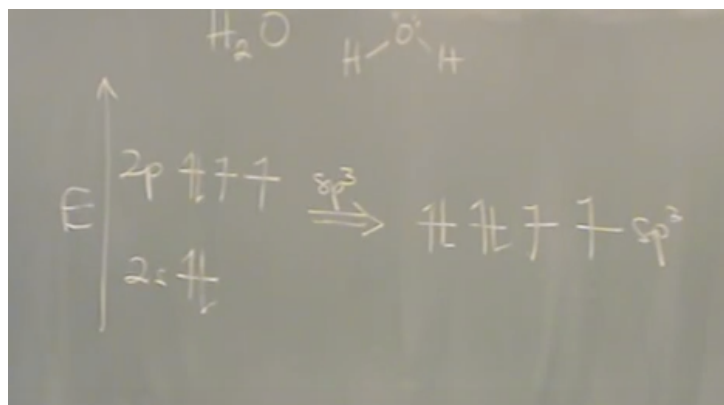 H₂O
H O H
E
2p ⥮ ↿ ↿ sp³ ⇒ ⥮ ⥮ ↿ ↿ sp³
2s ⥮